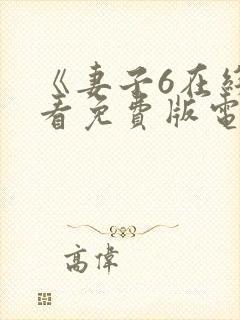 《妻子6在線
看免費版電
高偉